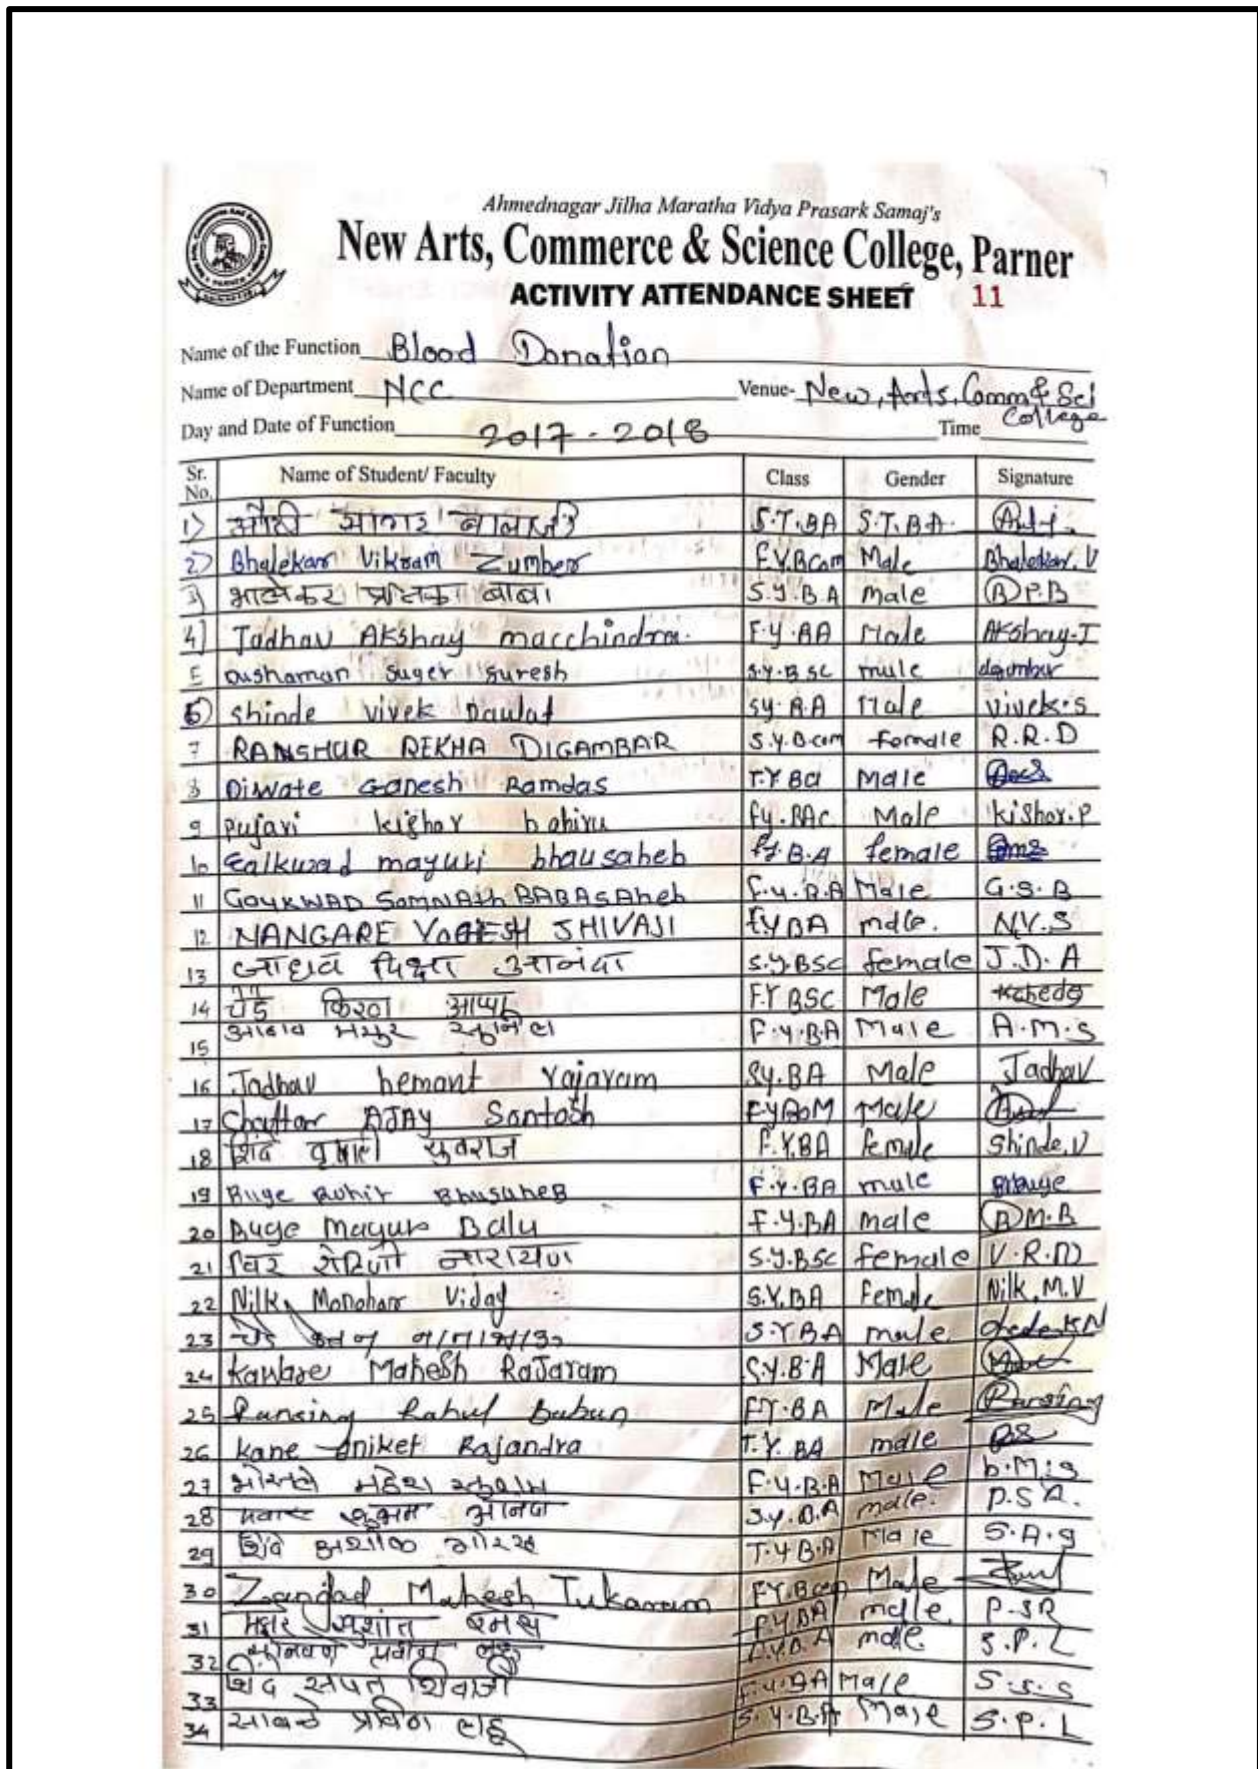 Ahmednagar Jilha Maratha Vidya Prasark Samaj's
New Arts, Commerce & Science College, Parner
ACTIVITY ATTENDANCE SHEET 11
Name of the Function Blood Donation
Name of Department NCC Venue- New, Arts, Comm & Sci College
Day and Date of Function 2017-2018 Time
Sr. No. Name of Student/ Faculty Class Gender Signature
1) सागर S.T.BA S.T.B.A.
2) Bhalekar Vikram Zumber F.Y.BCom Male Bhalekar.V
3) भालेकर बाबा S.Y.B.A male P.B
4) Jadhav Akshay macchindra. F.Y.BA Male Akshay-J
5 Suresh S.Y.BSC male
6) Shinde Vivek Daulat SY.BA Male vivek.s
7 RANSHUR REKHA DIGAMBAR S.Y.B.com female R.R.D
8 Diwate Ganesh Ramdas T.Y Male
9 Pujari kishor bahiru Male kishor.p
10 mayuri bhausaheb F.Y.B.A female
11 GOYKWAD SOMNAth BABASAheb F.Y.B.A Male G.S.B
12 NANGARE YOGESH SHIVAJI F.Y BA male. N.Y.S
13 जाधव S.Y.BSC female J.D.A
14 चेडे किरण F.Y BSC Male
15 मयुर F.Y.BA Male A.M.S
16 Jadhav hemant Rajaram SY.BA Male Jadhav
17 Chattar AJAY Santosh Male
18 शिंदे युवराज F.Y.BA female Shinde.V
19 Buge Rohit F.Y.BA male
20 Buge Mayur Balu F.Y.BA male B M.B
21 नारायण S.Y.BSC female V.R.N
22 Nilk Manohar Vijay S.Y.BA Female Nilk.M.V
23 चेडे S.Y BA male
24 Kaware Mahesh Rajaram S.Y.B.A Male
25 Ransing Rahul Baban F.Y.BA Male Ransing
26 Kane Aniket Rajandra T.Y. BA male
27 भोसले महेश F.Y.B.A Male b.M.s
28 पवार शुभम S.Y.B.A male. P.S.A.
29 शिंदे अशोक गोरख T.Y B.A Male S.A.g
30 Zandad Mahesh Tukaram F.Y.Bcom Male
31 प्रशांत F.Y BA male. P-SR
32 सोनवणे प्रवीण F.Y.B.A male S.P.L
33 शिंदे संपत शिवाजी F.Y.BA Male S.S.S
34 प्रविण लहू S.Y.B.A Male S.P.L